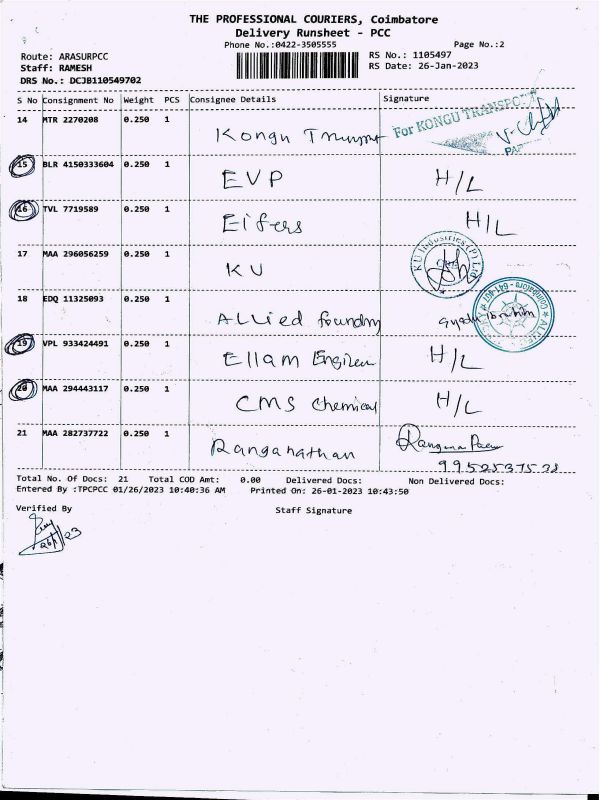 THE PROFESSIONAL COURIERS, Coimbatore
Delivery Runsheet - PCC
Phone No.:0422-3505555 Page No.:2
Route: ARASURPCC RS No.: 1105497
Staff: RAMESH RS Date: 26-Jan-2023
DRS No.: DCJB110549702
S No Consignment No Weight PCS Consignee Details Signature
14 MTR 2270208 0.250 1 Kongu For KONGU TRANSPORT
15 BLR 4150333604 0.250 1 EVP H/L
16 TVL 7719589 0.250 1 Eifers H/L
17 MAA 296056259 0.250 1 KU KU Industries (P) Ltd
18 EDQ 11325093 0.250 1 Allied foundry Ibrahim
19 VPL 933424491 0.250 1 Ellam H/L
20 MAA 294443117 0.250 1 CMS chemical H/L
21 MAA 282737722 0.250 1 Ranganathan
Total No. Of Docs: 21 Total COD Amt: 0.00 Delivered Docs: Non Delivered Docs:
Entered By :TPCPCC 01/26/2023 10:40:36 AM Printed On: 26-01-2023 10:43:50
Verified By Staff Signature